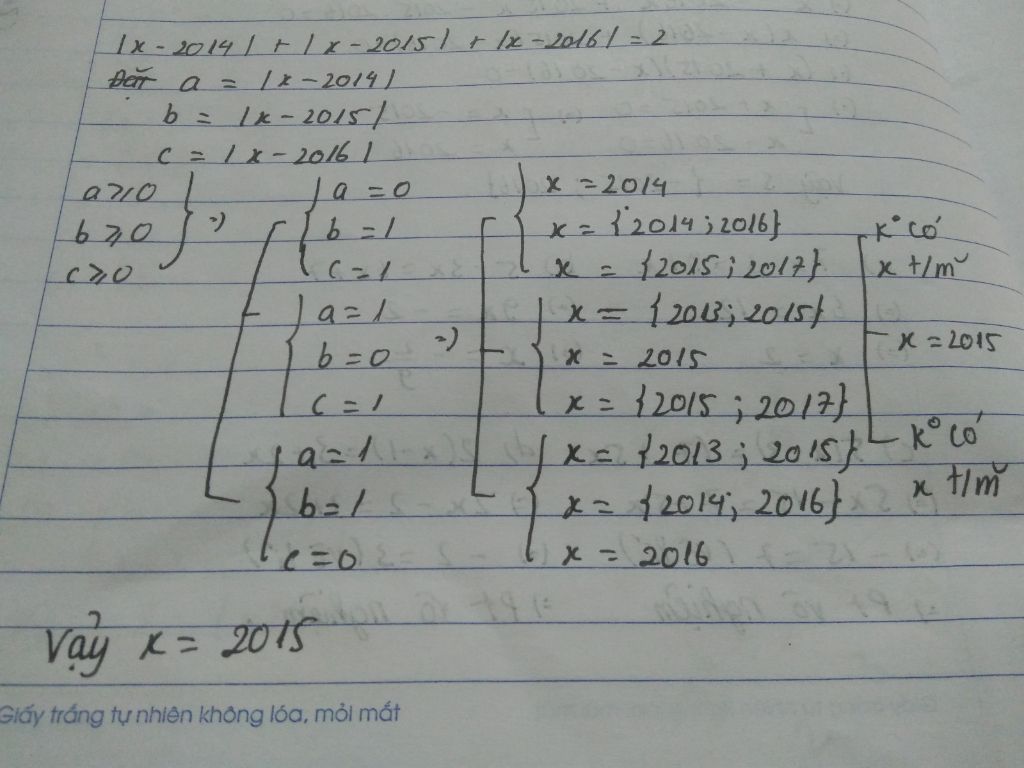 |x - 2014| + |x - 2015| + |x - 2016| = 2
Đặt a = |x - 2014|
b = |x - 2015|
c = |x - 2016|
a ⩾ 0
b ⩾ 0
c ⩾ 0
=)
a = 0
b = 1
c = 1
a = 1
b = 0
c = 1
a = 1
b = 1
c = 0
=)
x = 2014
x = {2014; 2016}
x = {2015; 2017}
x = {2013; 2015}
x = 2015
x = {2015; 2017}
x = {2013; 2015}
x = {2014; 2016}
x = 2016
K° Có
x t/m
x = 2015
K° Có
x t/m
Vậy x = 2015
Giấy trắng tự nhiên không lóa, mỏi mắt